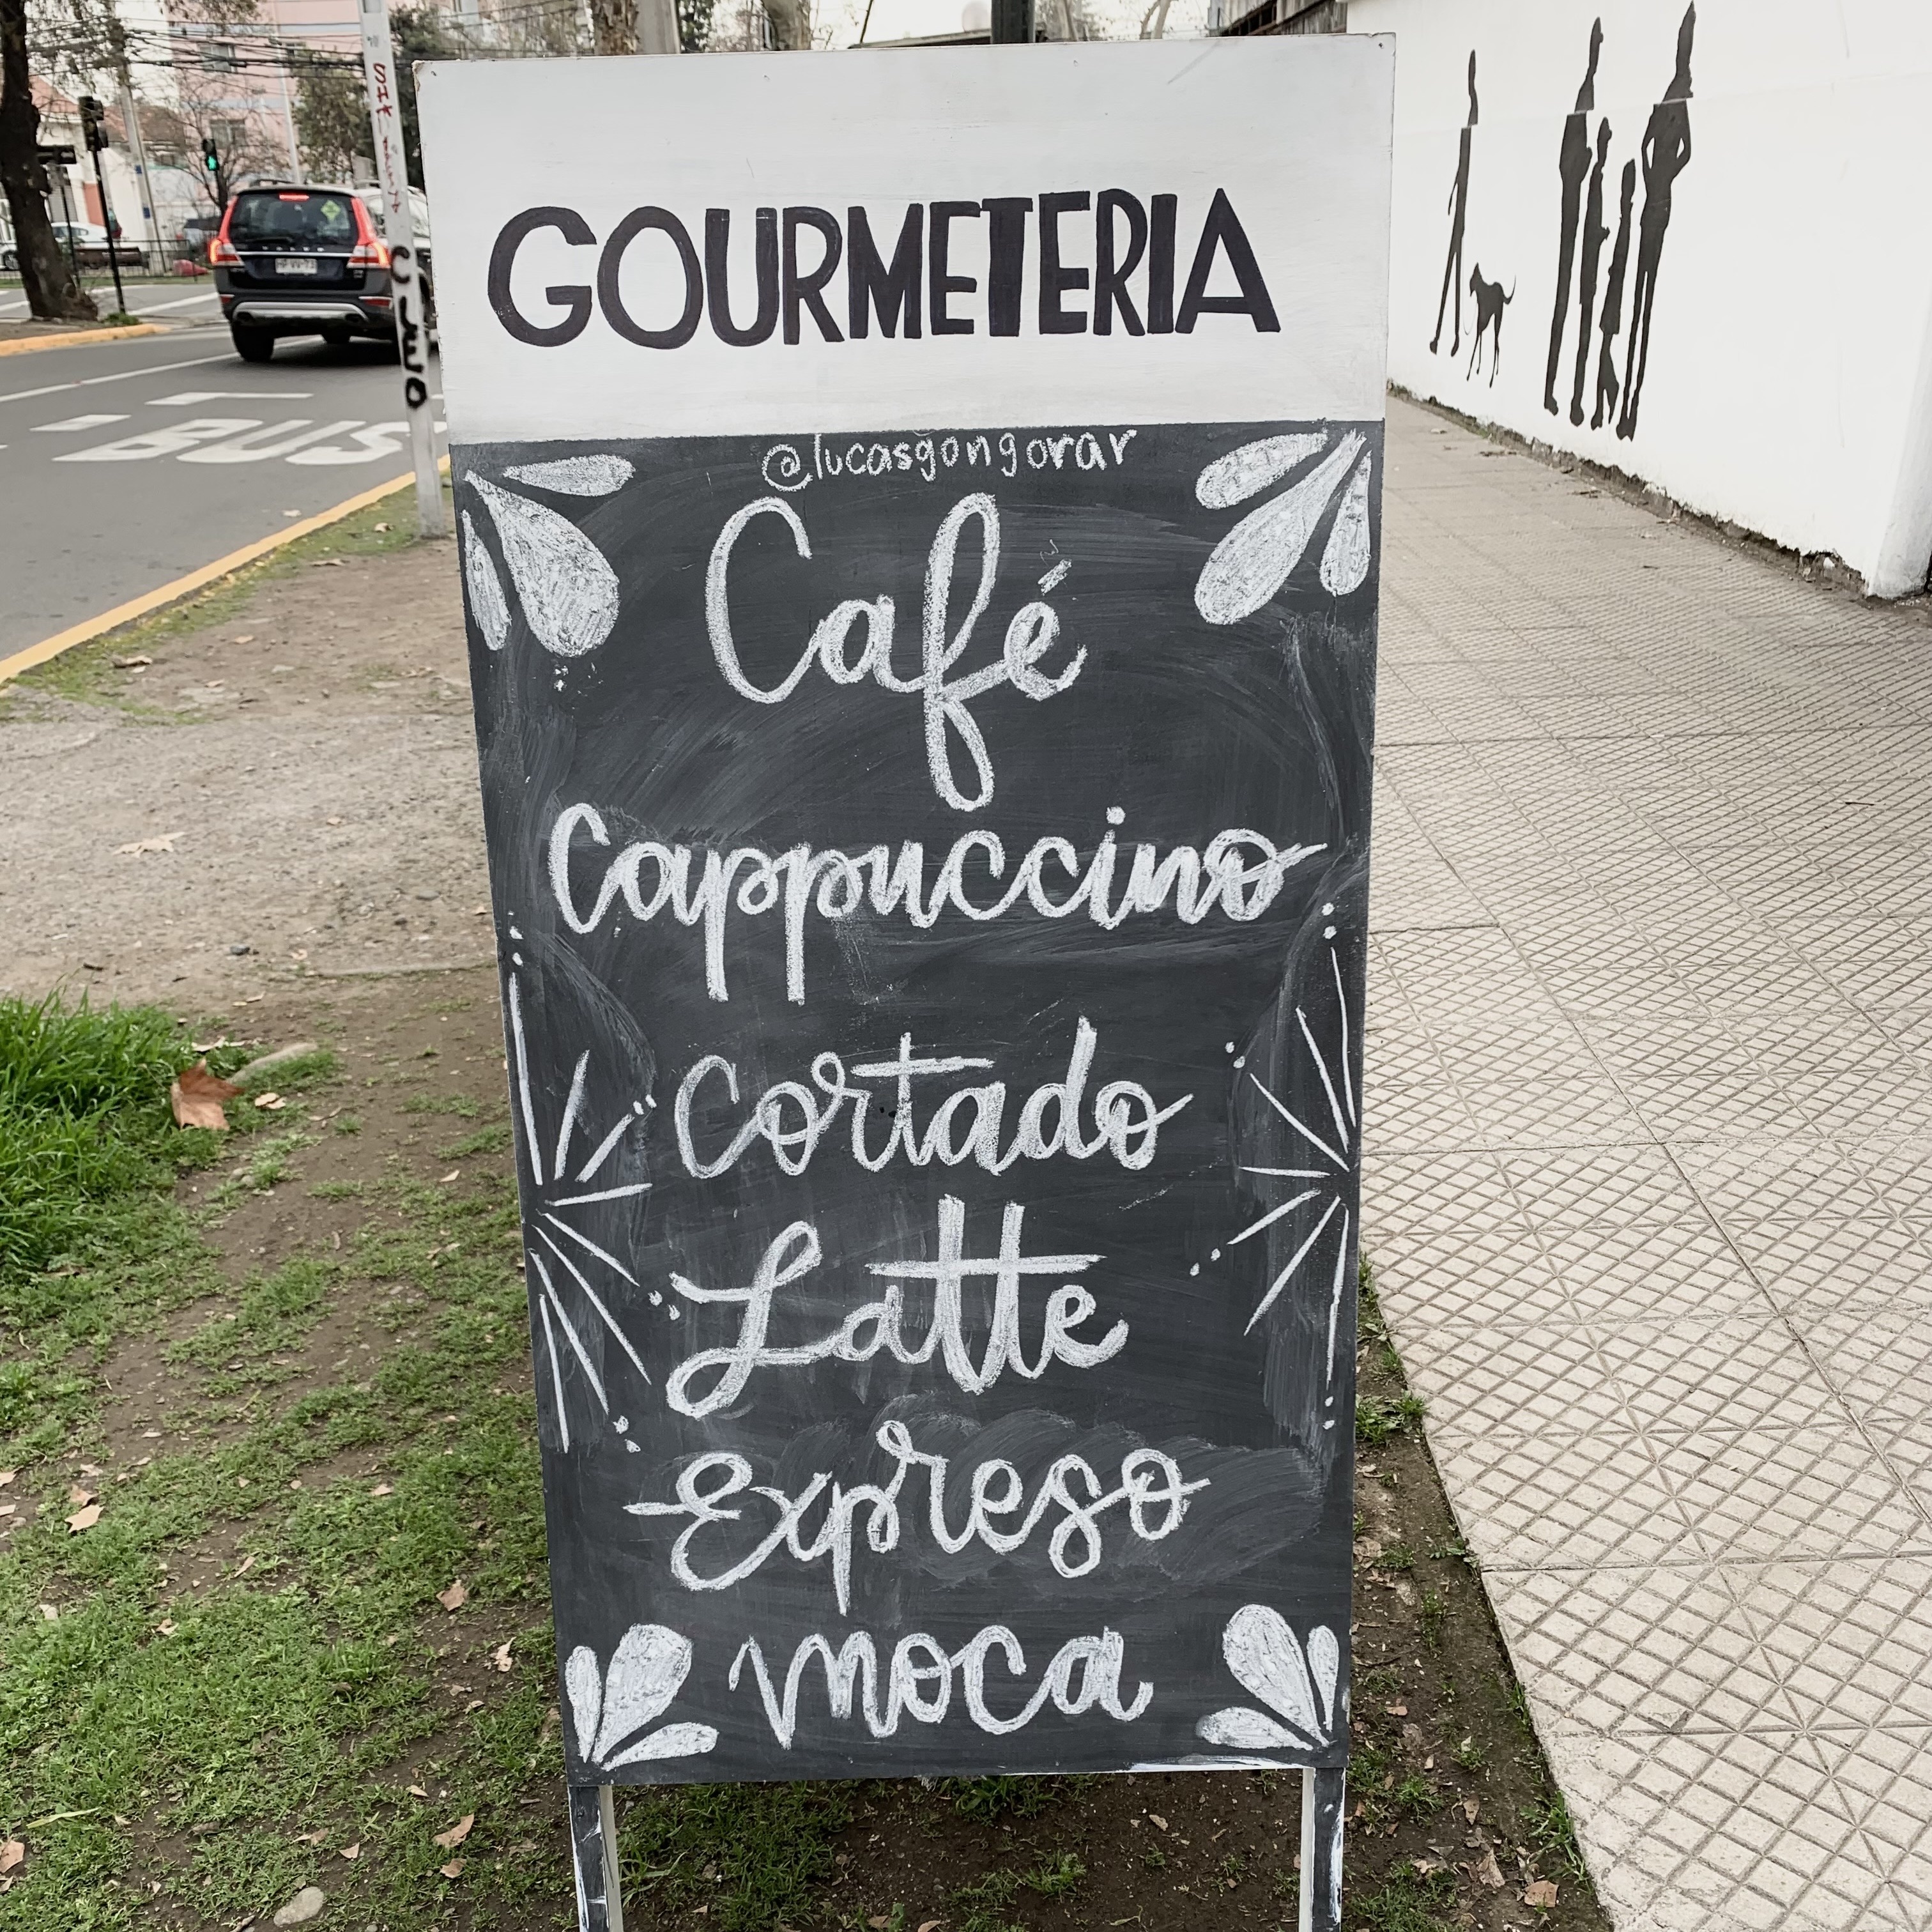 GOURMETERIA
@lucasgongorar
Café
Cappuccino
Cortado
Latte
Expreso
moca
BUS
CLEO